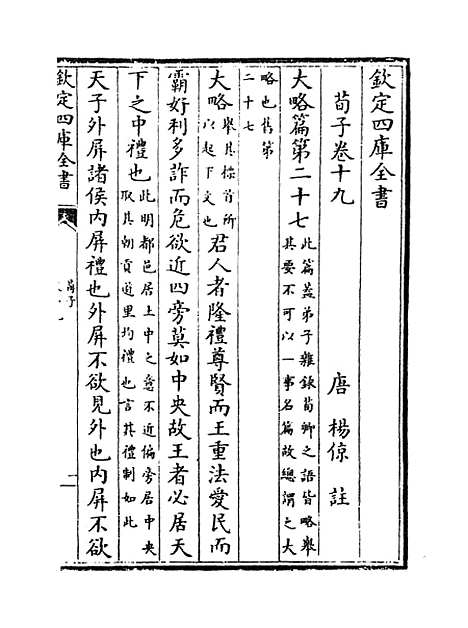 欽定四庫全書
荀子卷十九
唐 楊倞 註
大略篇第二十七此篇蓋弟子雜錄荀卿之語皆略舉其要不可以一事名篇故總謂之大
略也舊第二十七
大略舉其標首所以起下文也君人者隆禮尊賢而王重法愛民而
霸好利多詐而危欲近四旁莫如中央故王者必居天
下之中禮也此明都邑居土中之意不近偏旁居中央取其朝貢道里均禮也言其禮制如此
天子外屏諸侯內屏禮也外屏不欲見外也內屏不欲
欽定四庫全書
荀子